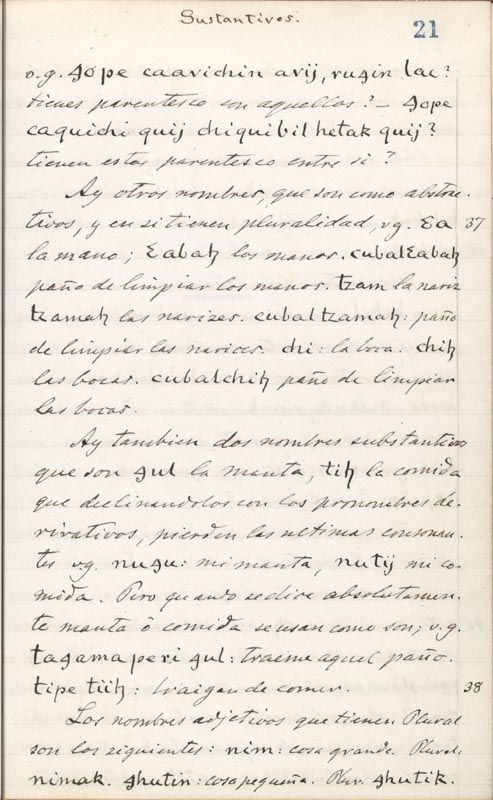 Sustantivos.
21
v.g. ꜭope caavichin arij, ruꜭin lae?
tienes parentesco con aquellos? — ꜭope
caquichi quij chiquibil hetak quij?
tienen estos parentesco entre si?
Ay otros nombres, que son como abstrac-
tivos, y en si tienen pluralidad, vg. Ɛa 37
la mano; Ɛabaꜧ las manos. cubalƐabaꜧ
paño de limpiar las manos. tzam la nariz
tzamaꜧ las narizes. cubaltzamaꜧ: paño
de limpiar las narices. chi: la boca. chiꜧ
las bocas. cubalchiꜧ paño de limpiar
las bocas.
Ay tambien dos nombres substantivos
que son ꜭul la manta, tiꜧ la comida
que declinandolos con los pronombres de-
rivativos, pierden las ultimas consonan-
tes vg. nuꜭu: mi manta, nutij mi co-
mida. Pero quando se dice absolutamen-
te manta ô comida se usan como son; v.g.
taꜭama peri ꜭul: traeme aquel paño.
tipe tiiꜧ: traigan de comer. 38
Los nombres adjetivos que tienen Plural
son los siguientes: nim: cosa grande. Plural:
nimak. ꜭhutin: cosa pequeña. Plur. ꜭhutik.